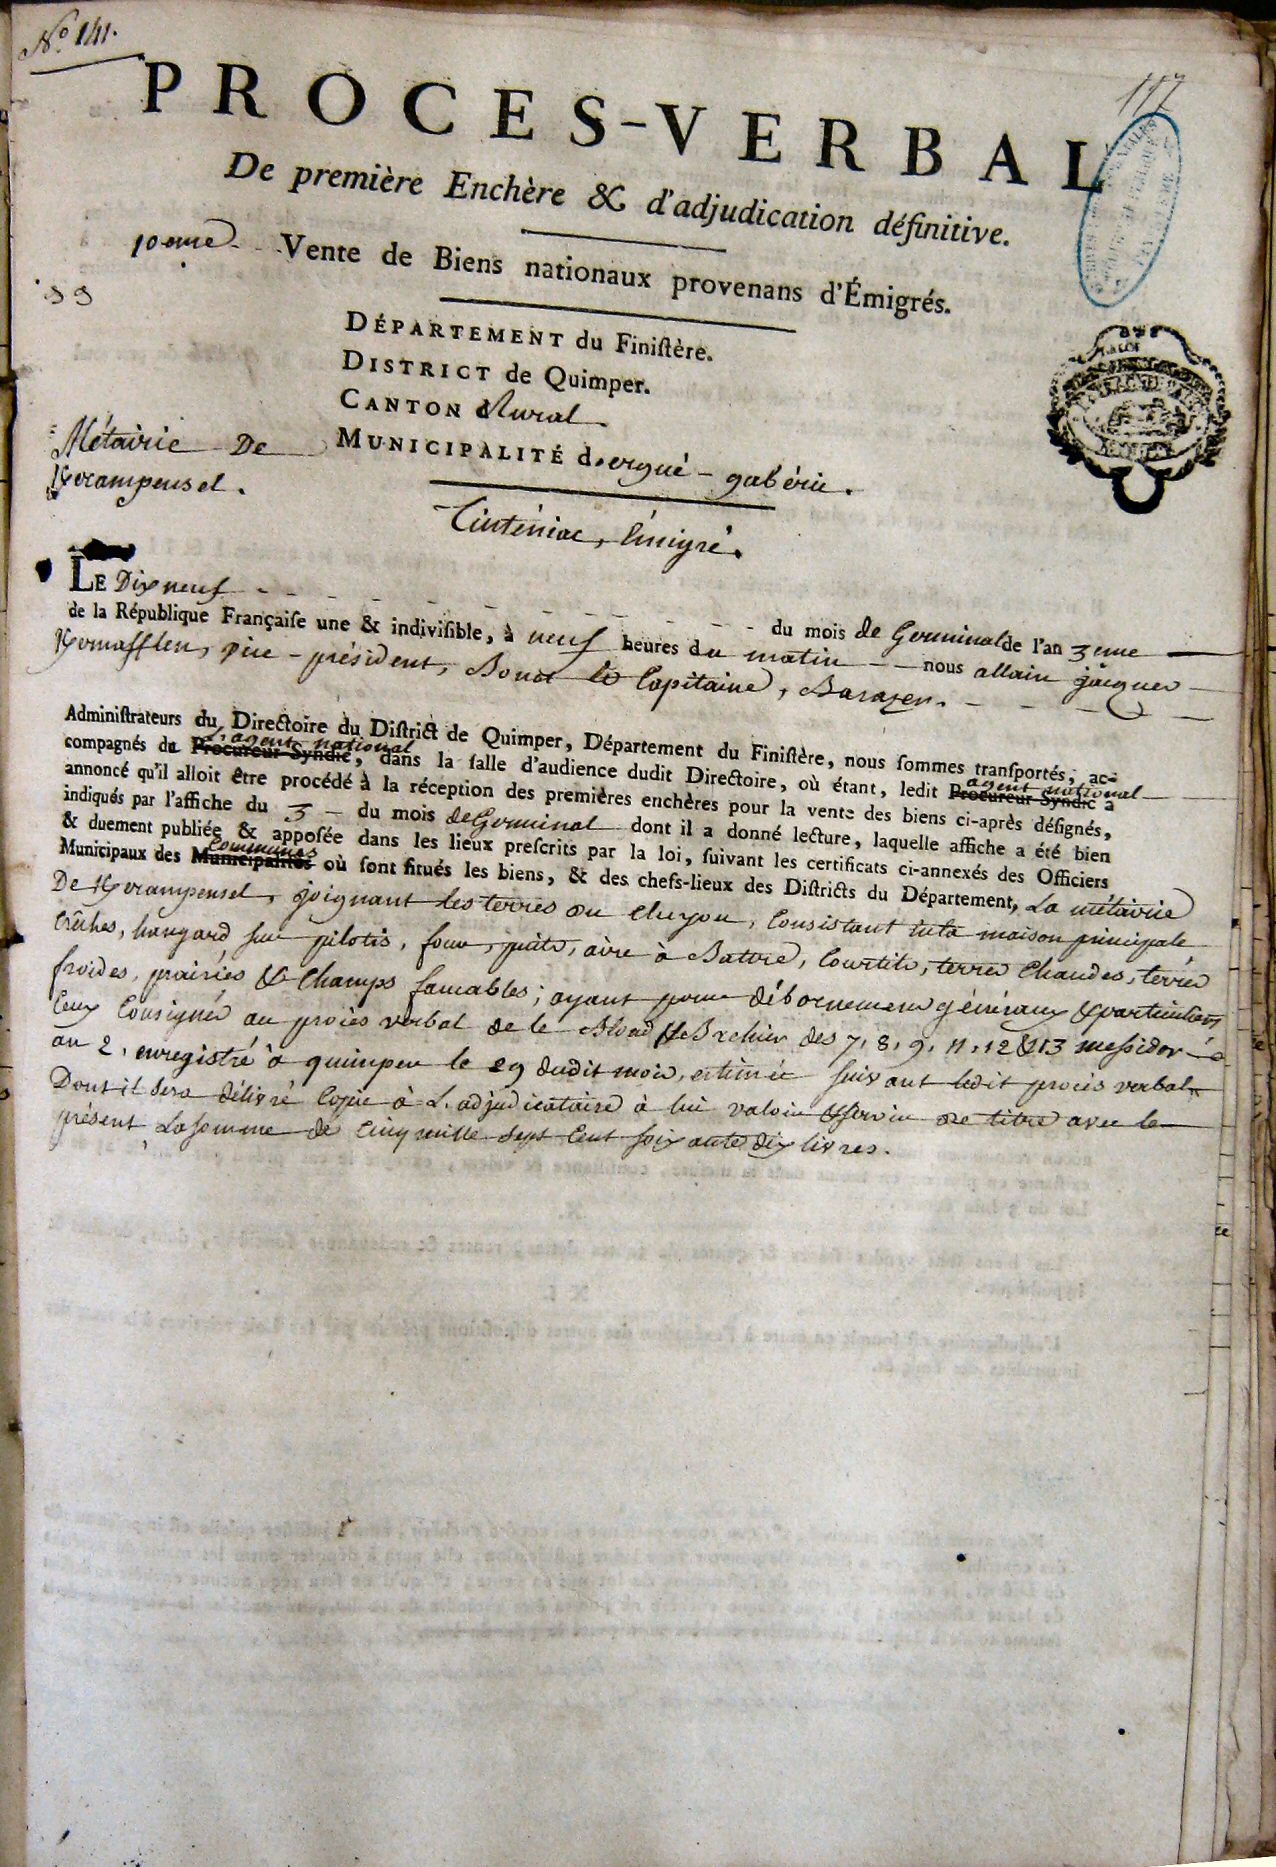 N.º 141.
117
PROCES-VERBAL
De première Enchère & d'adjudication définitive.
10eme Vente de Biens nationaux provenans d'Émigrés.
99
DÉPARTEMENT du Finiſtère.
DISTRICT de Quimper.
CANTON Rural
MUNICIPALITÉ d'ergué-gabéric.
Métairie De
Kerampensel.
Tinténiac, Émigré.
LE Dix neuf du mois de Germinal de l'an 3eme
de la République Françaiſe une & indiviſible, à neuf heures du matin nous allain jacques
Kernafflen, vice-président, Bonet le Capitaine, Barazer.
Adminiſtrateurs du Directoire du Diſtrict de Quimper, Département du Finiſtère, nous ſommes tranſportés, ac-
compagnés de L'agent national Procureur Syndic, dans la ſalle d'audience dudit Directoire, où étant, ledit agent national Procureur Syndic a
annoncé qu'il alloit être procédé à la réception des premières enchères pour la vente des biens ci-après déſignés,
indiqués par l'affiche du 3 du mois de Germinal dont il a donné lecture, laquelle affiche a été bien
& duement publiée & appoſée dans les lieux preſcrits par la loi, ſuivant les certificats ci-annexés des Officiers
Municipaux des Communes Municipalités où ſont ſitués les biens, & des chefs-lieux des Diſtricts du Département, La métairie
De Kerampensel, joignant les terres du cluyou, Consistant maison principale
Crêches, hangard sur pilotis, four, puits, aire à Battre, Courtils, terres Chaudes, terres
froides, prairies & Champs fauchables; ayant pour débornemens généraux & particuliers
Ceux Consignés au procès verbal de le Blond & le Brehier des 7, 8, 9, 11, 12 & 13 messidor
an 2, enregistré à quimper le 29 dudit mois, estimée suivant ledit procès verbal
Dont il sera délivré Copie à L'adjudicataire à lui valoir & servir de titre avec le
présent La somme de cinq mille sept Cent soixante dix livres.